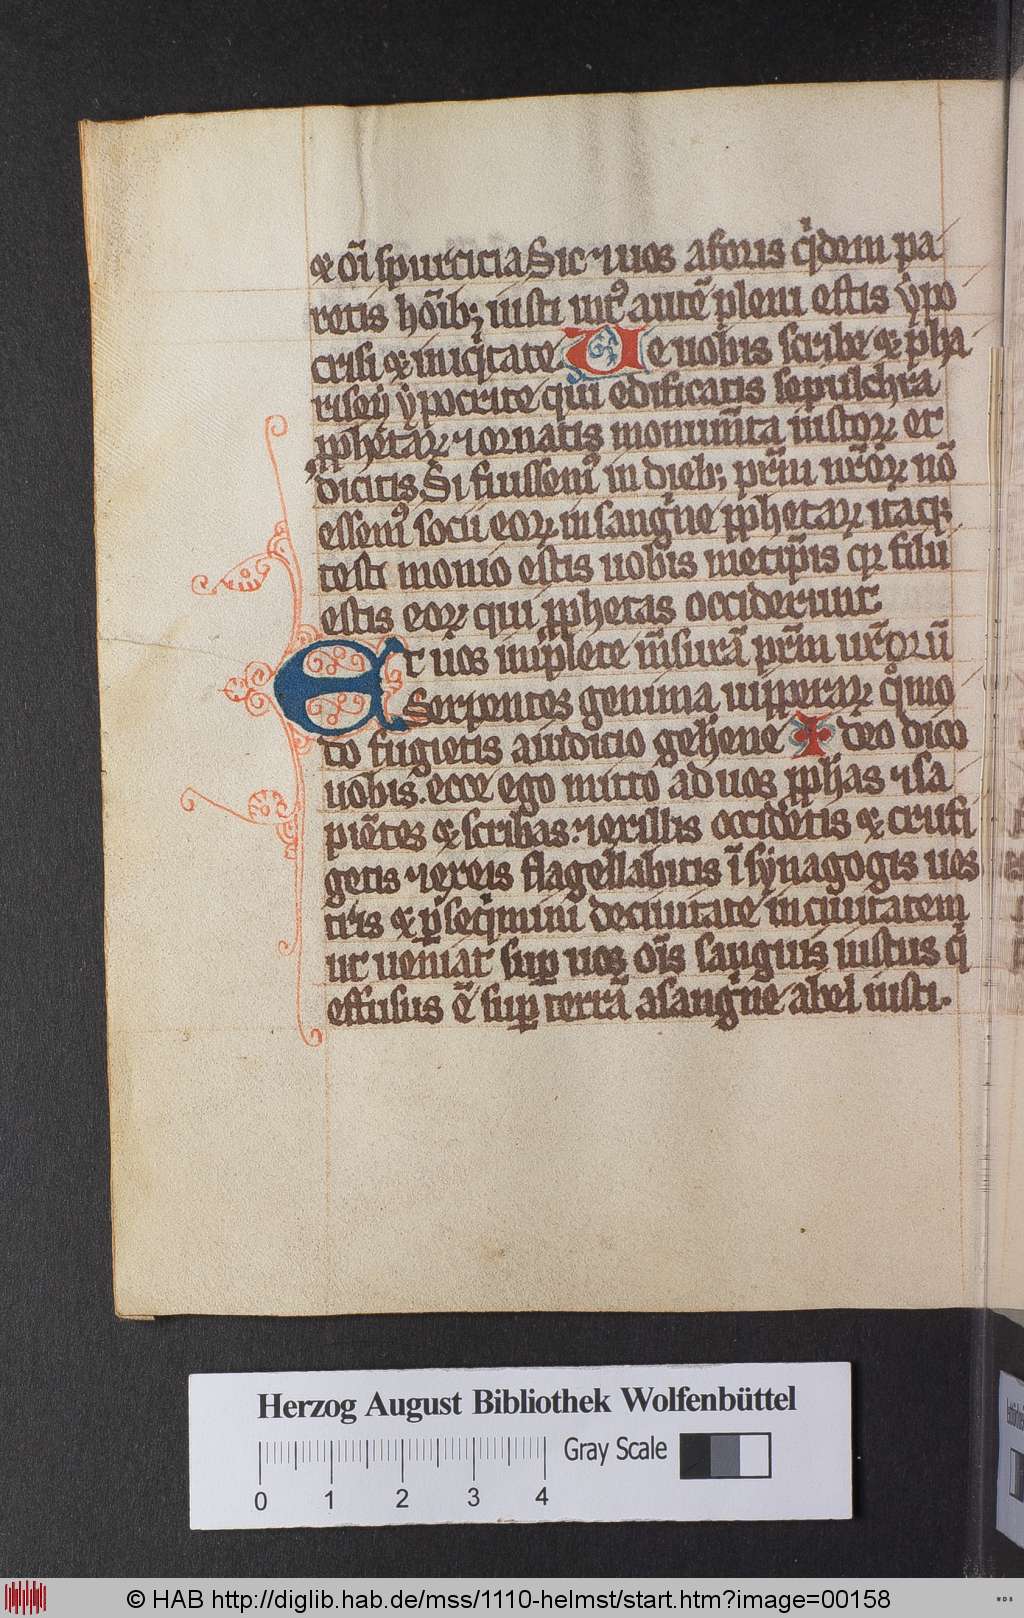 ⁊ oi̅ spurcicia Sic ⁊ uos aforis qͥdem pa
retis ho̅ib; iusti int᷒ aute̅ pleni estis ẏpo
crisi ⁊ iniqͥtate Ue uobis scribe ⁊ pha
risey ẏpocrite qui edificatis sepulchra
ꝓphetaꝝ ⁊ ornatis monum̅ta iustoꝝ et
dicitis Si fuissem᷒ in dieb; pr̅m nr̅oꝝ no̅
essem᷒ socii eoꝝ in sangͥne ꝓphetaꝝ itaq;
testi monio estis uobis metip̅is qꝛ filii
estis eoꝝ qui ꝓphetas occiderunt.
Et uos implete m̅sura̅ pr̅m ur̅oru̅
Serpentes genima uiꝑeraꝝ qͦmo
do fugietis aiudicio gehene Ideo dico
uobis. ecce ego mitto ad uos ꝓphas ⁊ sa
pie̅tes ⁊ scribas. ⁊ exillis occidetis ⁊ crufi
getis ⁊ exeis flagellabitis i̅ synagogis ues
tris ⁊ ꝑseqͥmini deciuitate in ciuitatem
ut ueniat suꝑ uos oi̅s sanguis iustus qͥ
effusus e̅ suꝑ terra̅ asangͥne abel iusti.
Herzog August Bibliothek Wolfenbüttel
Gray Scale
0 1 2 3 4
© HAB http://diglib.hab.de/mss/1110-helmst/start.htm?image=00158